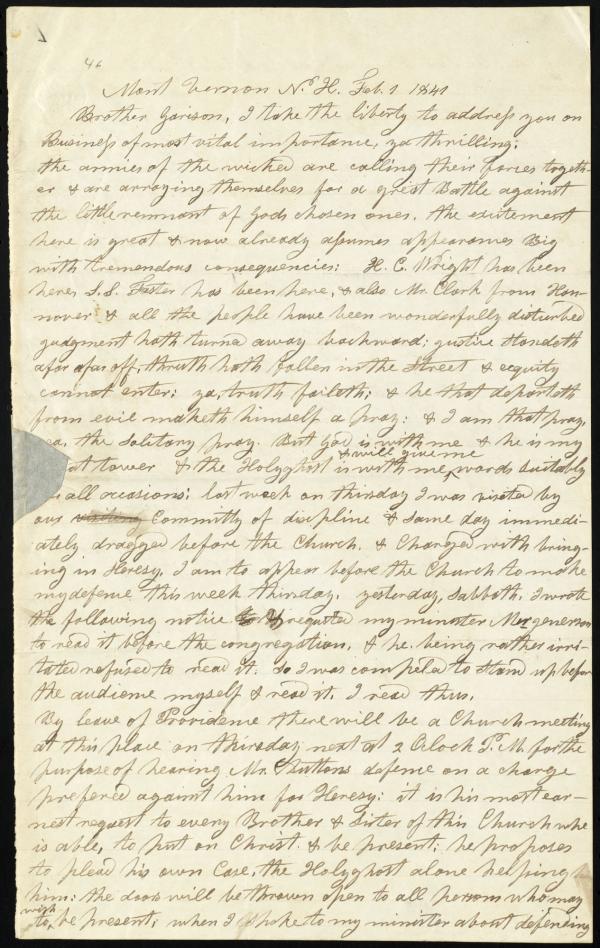 46
Mont Vernon N.H. Feb. 1 1841
Brother Garison, I take the liberty to address you on
Business of most vital importance, ya thrilling;
the armies of the wicked are calling their forces togeth-
er & are arraying themselves for a great Battle against
the little remnant of Gods chosen ones. the exitement
here is great & now already asumes appearames Big
with tremendous consequencies: H. C. Wright has been
here, S. S. Foster has been here, & also Mr. Clark from Han-
nover & all the people have been wonderfully disturbed
judgment hath turnd away backward; justice standeth
afar afar off; thruth hath fallen in the Street & equity
cannot enter; ya, truth faileth; & he that departeth
from evil maketh himself a pray: & I am that pray,
ea, the Solitary pray. But God is with me & he is my
& will give me
at tower & the Holyghost is with me, words suitably
all occasions; last week on thirsday I was visited by
our visiting Committy of discipline & same day immedi-
ately dragged before the Church. & Charged with bring-
ing in Heresy. I am to appear before the Church to make
my defense this week thirsday. yesterday, Sabbath, I wrote
the following notice & requested my minister
to read it before the congregation, & he being rather irri-
tated refused to read it. So I was compeled to stand up before
the audience myself & read it. I read thus.
By leave of Providence there will be a Church meeting
at this place on thirsday next at 2 Oclock P.M. for the
purpose of hearing Mr. Buttons defence on a charge
prefered against him for Heresy: it is his most ear-
nest request to every Brother & Sister of this Church who
is able, to put on Christ & be present; he proposes
to plead his own Case, the Holyghost alone helping
him; the doors will be thrown open to all persons who may
wish
to be present, when I spoke to my minister about defending